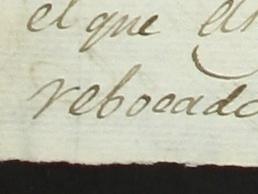 el que es
rebocado